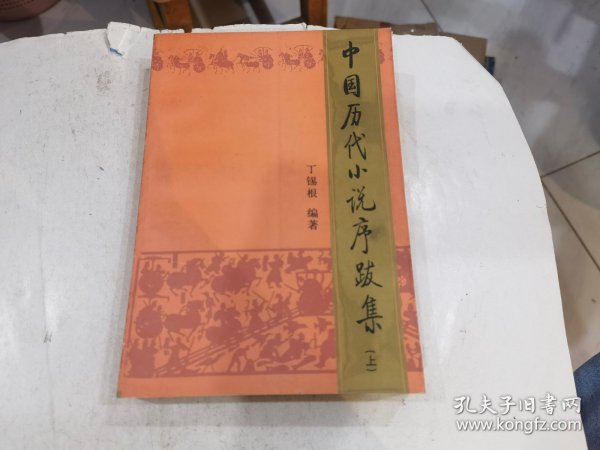 中国历代小说序跋集(上)
丁锡根 编著
孔夫子旧书网
www.kongfz.com